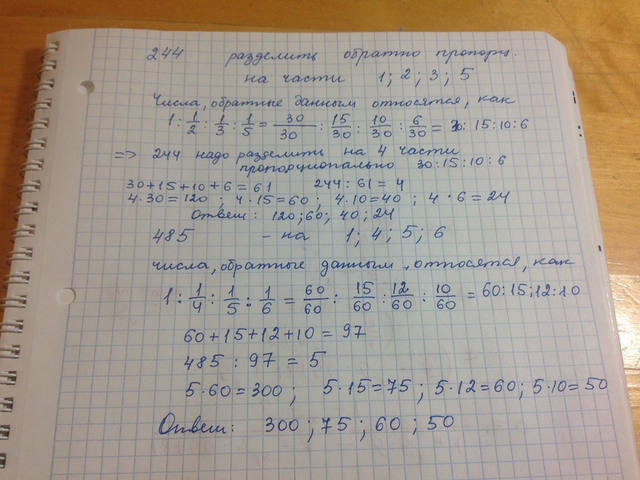 244 разделить обратно пропорц.
на части 1; 2; 3; 5
Числа, обратные данным относятся, как
1 : 1/2 : 1/3 : 1/5 = 30/30 : 15/30 : 10/30 : 6/30 = 30:15:10:6
=> 244 надо разделить на 4 части
пропорционально 30:15:10:6
30+15+10+6=61 244:61=4
4·30=120 ; 4·15=60 ; 4·10=40 ; 4·6=24
Ответ: 120; 60; 40; 24
485 – на 1; 4; 5; 6
числа, обратные данным, относятся, как
1 : 1/4 : 1/5 : 1/6 = 60/60 : 15/60 : 12/60 : 10/60 = 60:15;12:10
60+15+12+10=97
485 : 97 = 5
5·60=300 ; 5·15=75 ; 5·12=60; 5·10=50
Ответ: 300 ; 75 ; 60 ; 50